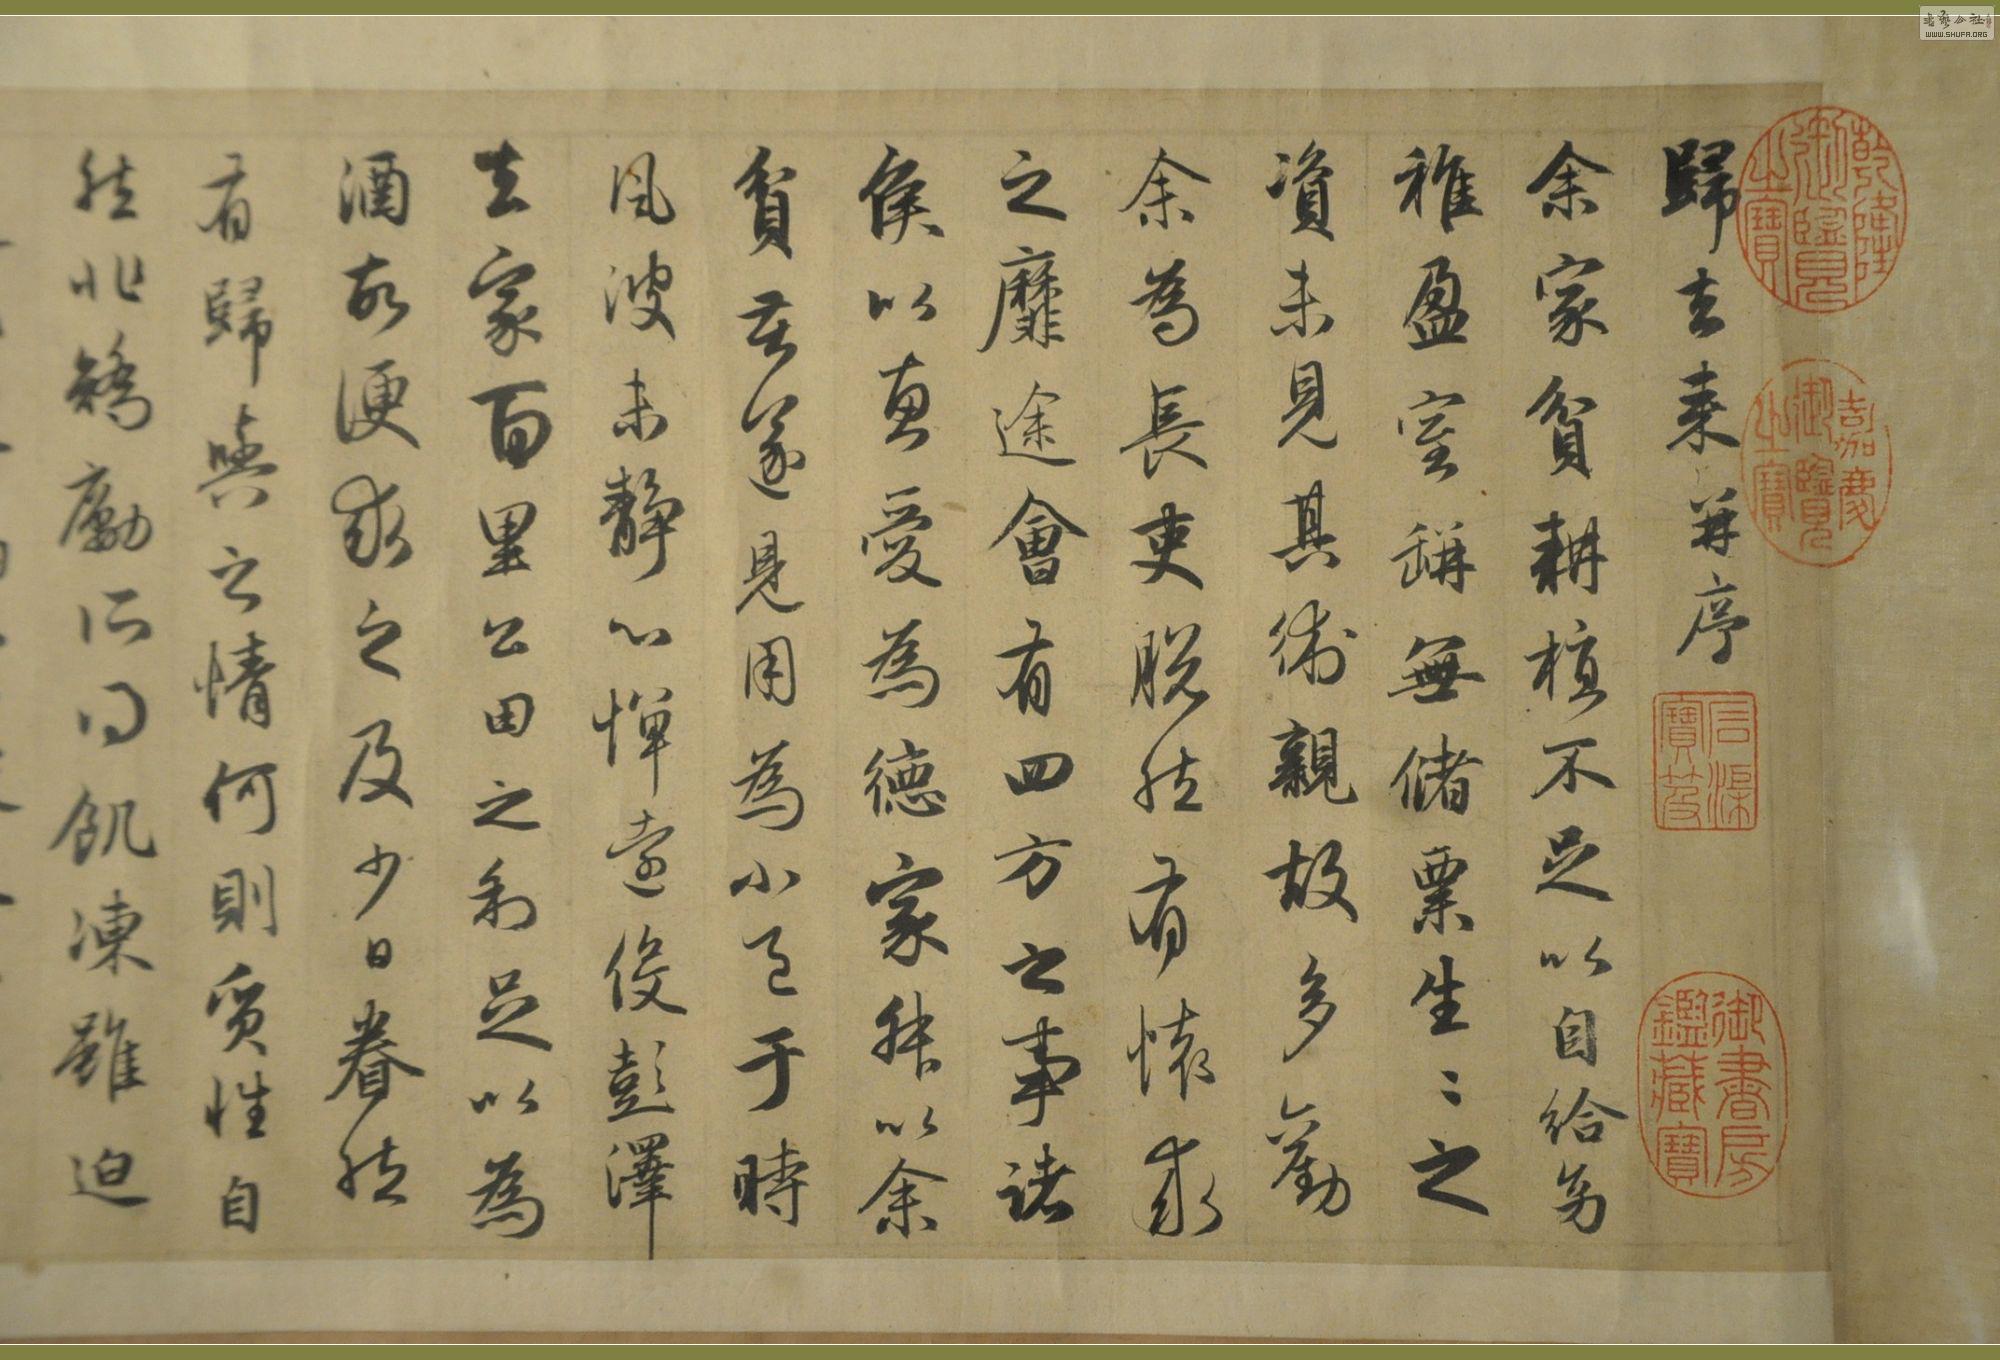 乾隆御覽之寶
嘉慶御覽之寶
歸去来并序
石渠寶笈
御書房鑑藏寶
余家貧耕植不足以自給幼
稚盈室缾無儲粟生〻之
資未見其術親故多勸
余為長吏脫然有懷求
之靡途會有四方之事諸
侯以惠愛為德家叔以余
貧苦遂見用為小邑于時
風波未靜心憚遠役彭澤
去家百里公田之利足以為
酒故便求之及少日眷然
有歸歟之情何則質性自
然非矯勵所得飢凍雖迫
书艺公社
WWW.SHUFA.ORG